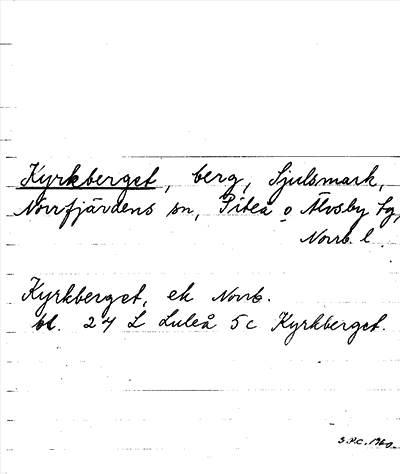 Kyrkberget, berg, Sjulsmark,
Norrfjärdens sn, Piteå o Älvsby tg,
Norrb. l.
Kyrkberget, ek Norrb.
bl. 24 L Luleå 5c Kyrkberget.